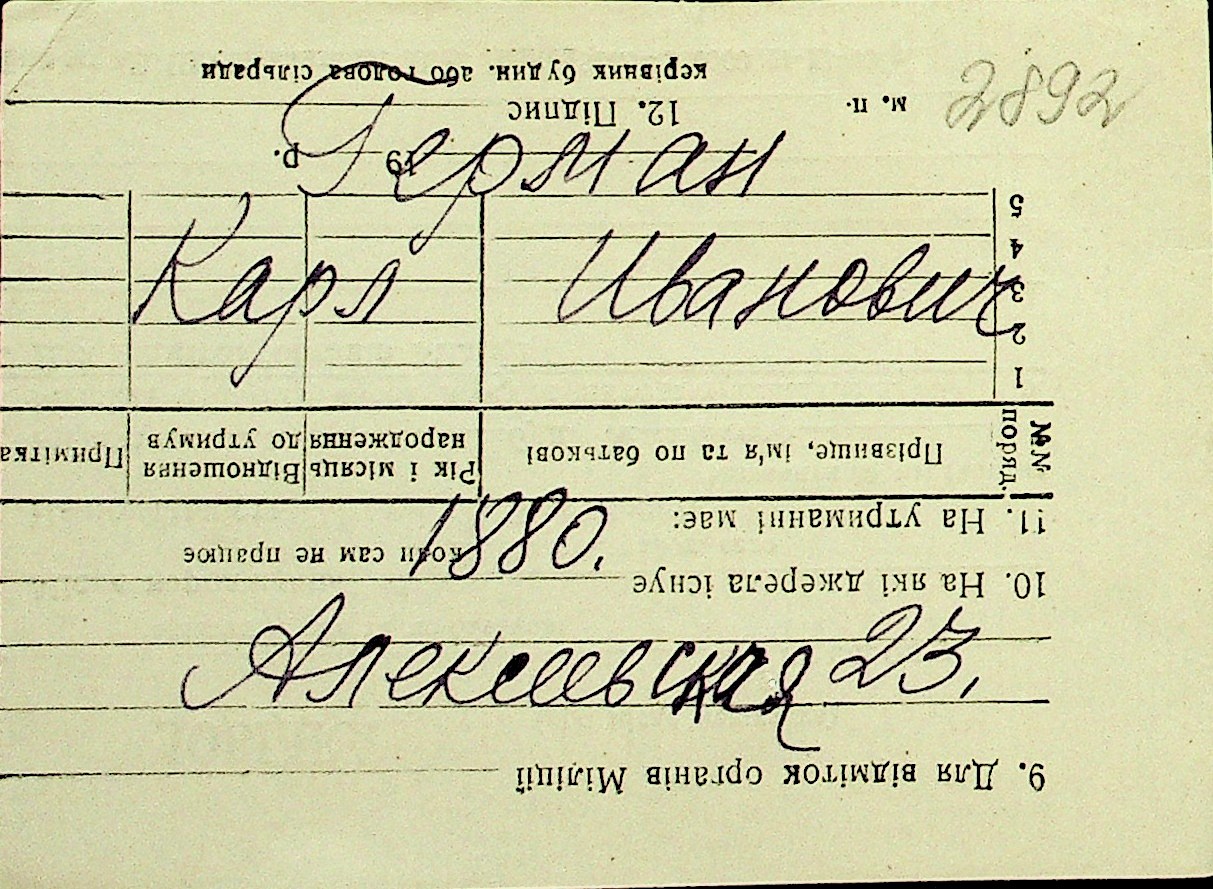 2892
Герман
Карл Иванович
1880.
Алексеевская 23.
9. Для відміток органів Міліції
10. На які джерела існує
коли сам не працює
11. На утриманні має:
№№ поряд. Прізвище, ім'я та по батькові Рік і місяць народження Відношення до утримув Примітка
1
2
3
4
5
19 р.
м. п. 12. Підпис
керівник будин. або голова сільради